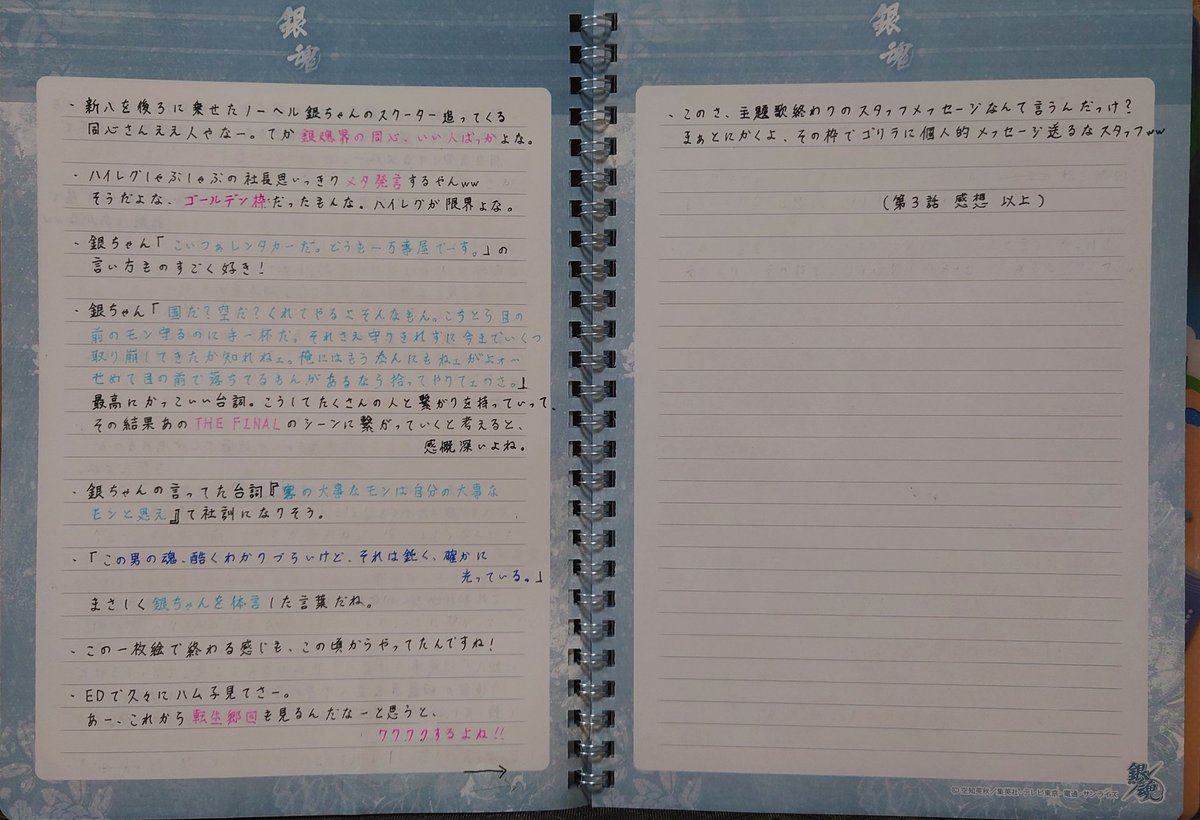 銀魂
・新八を後ろに乗せたノーヘル銀ちゃんのスクーター追ってくる
同心さんええ人やなー。てか銀魂界の同心、いい人ばっかよな。
・ハイレグしゃぶしゃぶの社長思いっきりメタ発言するやんww
そうだよな、ゴールデン枠だったもんな。ハイレグが限界よな。
・銀ちゃん「こいつぁレンタカーだ。どうも一万事屋でーす。」の
言い方ものすごく好き!
・銀ちゃん「国だ?空だ?くれてやるよそんなもん。こちとら目の
前のモン守るのに手一杯だ。それさえ守りきれずに今までいくつ
取り崩してきたか知れねェ。俻にはもうなんにもねェがよォー
せめて目の前で落ちてるもんがあるなら拾ってやりてェのさ。」
最高にかっこいい台詞。こうしてたくさんの人と繋がりを持っていって、
その結果あのTHE FINALのシーンに繋がっていくと考えると、
感慨深いよね。
・銀ちゃんの言ってた台詞『客の大事なモンは自分の大事な
モンと思え』て社訓になりそう。
・「この男の魂、酷くわかりづらいけど、それは鈍く、確かに
光っている。」
まさしく銀ちゃんを体言した言葉だね。
・この一枚絵で終わる感じも、この頃からやってたんですね!
・EDで久々にハム子見てさー。
あー、これから転生郷回も見るんだなーと思うと、
ワクワクするよね!!
→
銀魂
・このさ、主題歌終わりのスタッフメッセージなんて言うんだっけ?
まぁとにかくよ、その枠でゴリラに個人的メッセージ送るなスタッフww
(第3話 感想 以上)
銀魂
©空知英秋/集英社・テレビ東京・電通・サンライズ